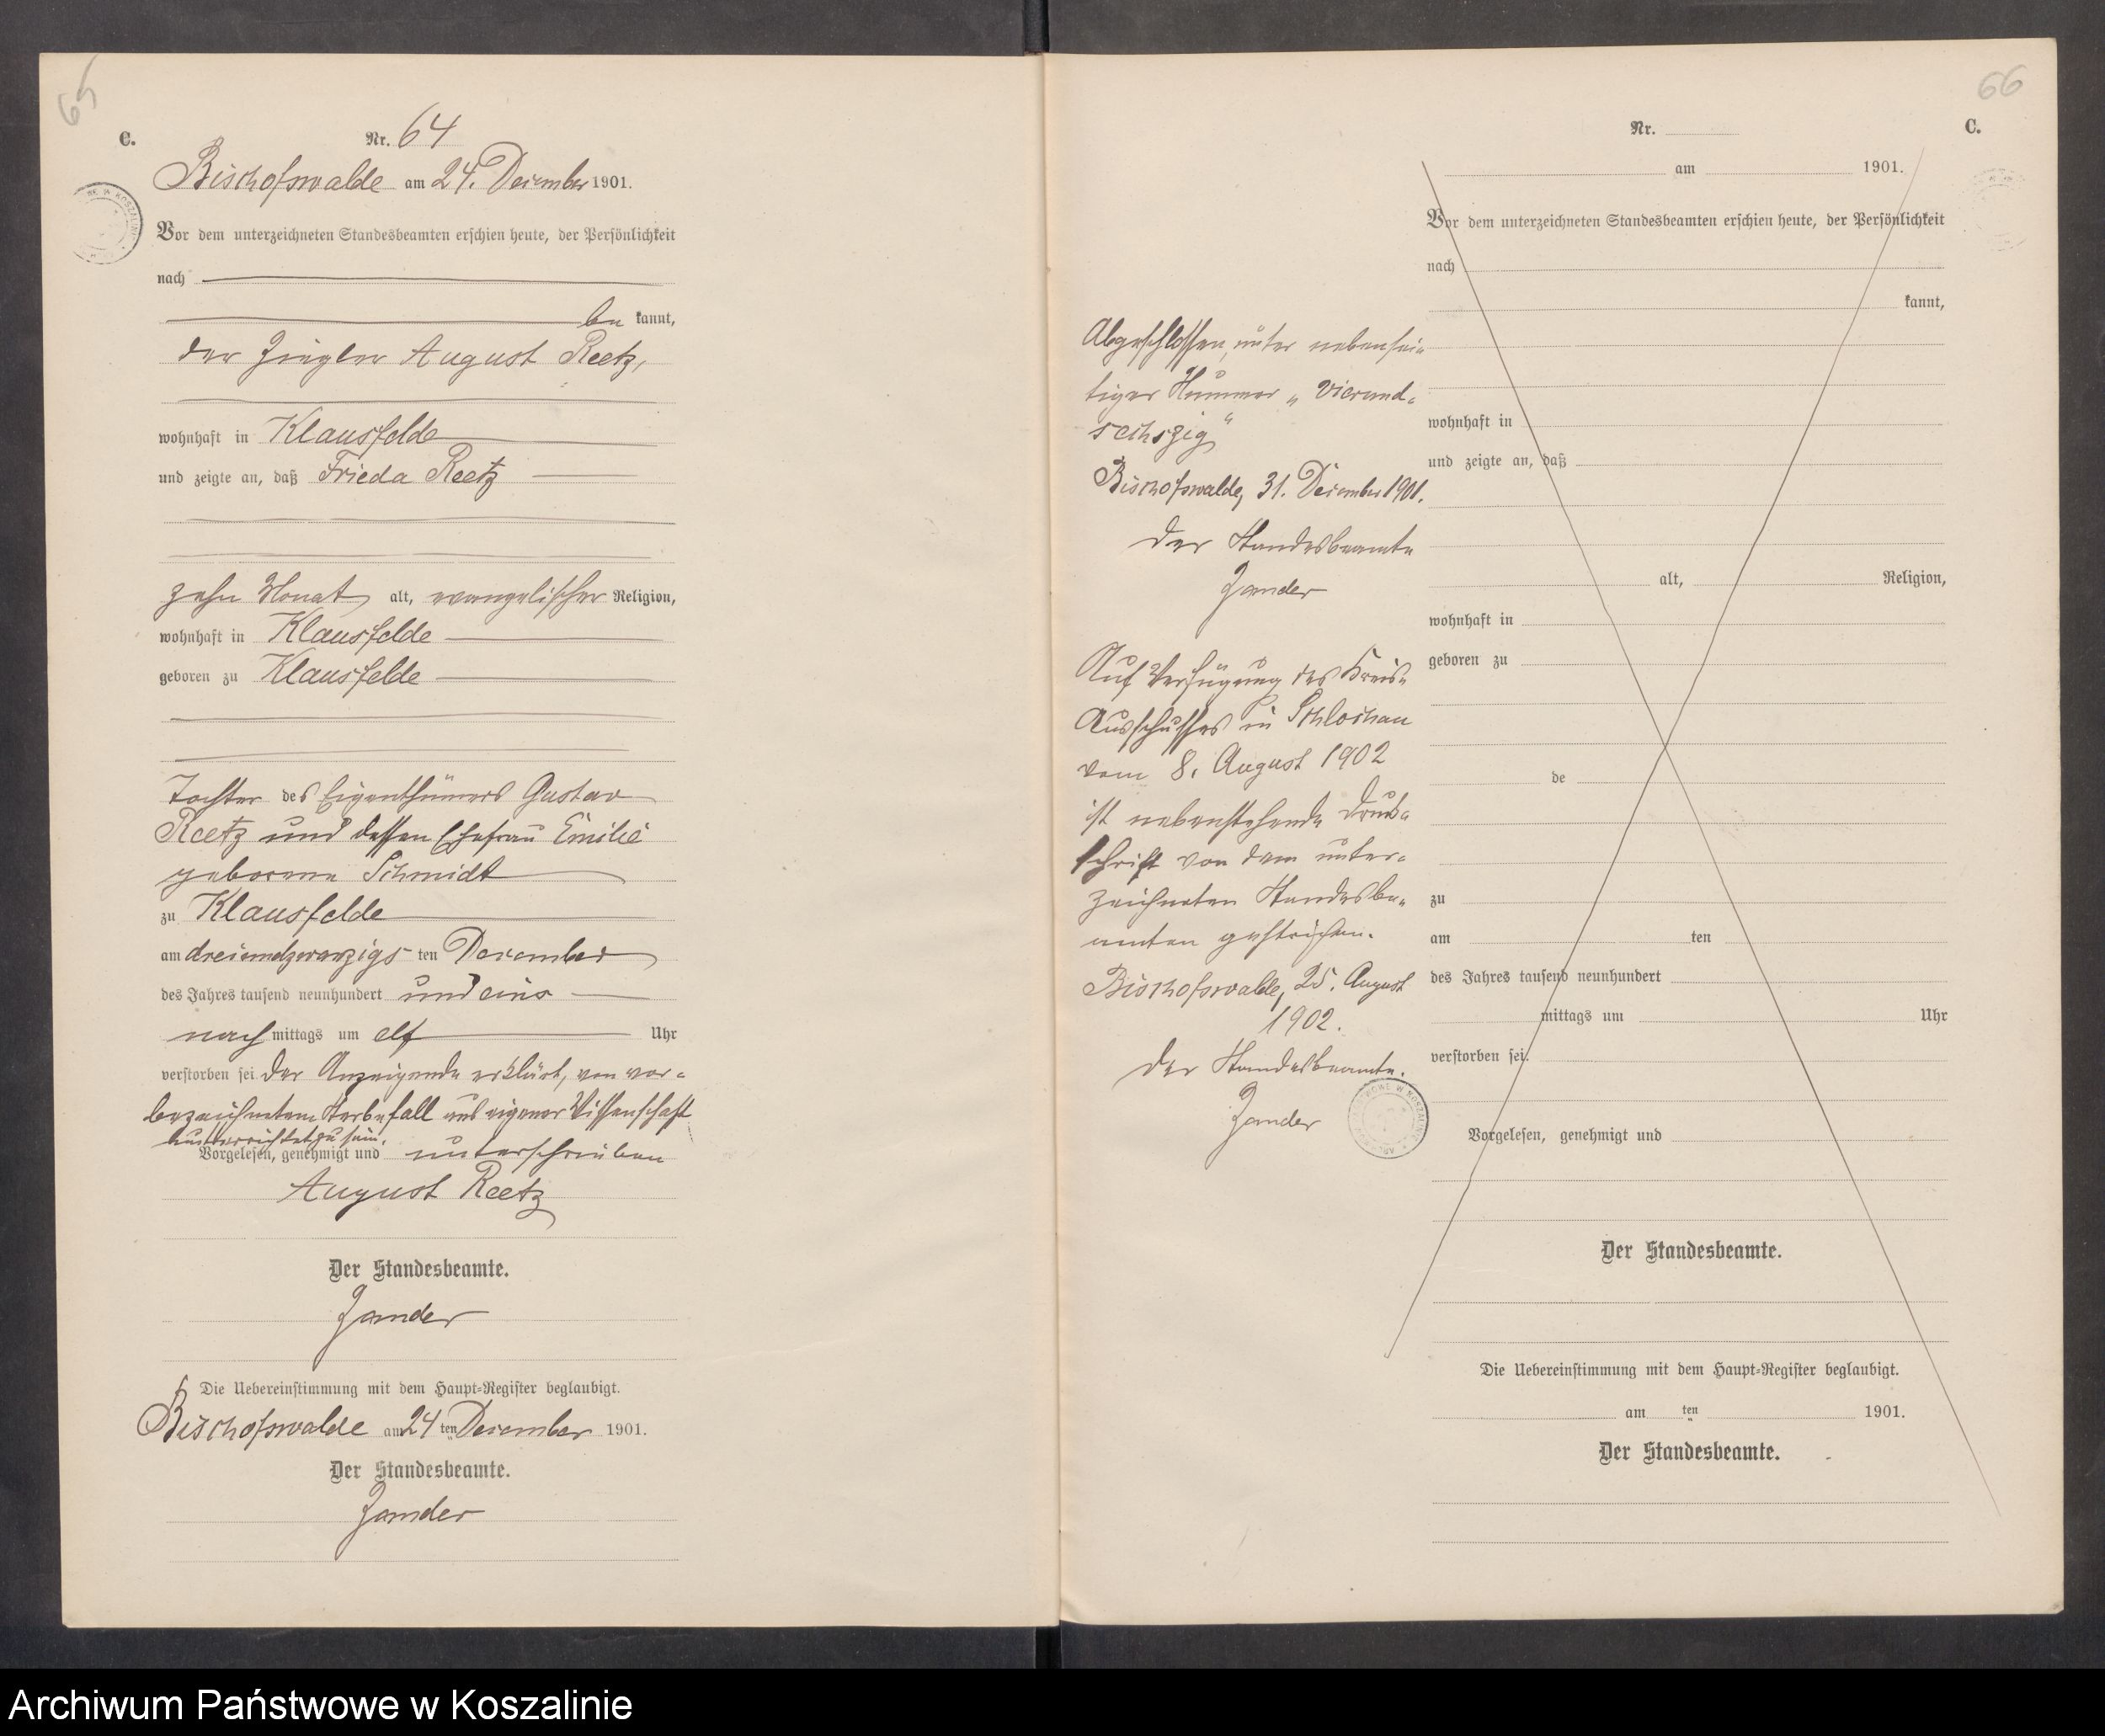 65
C.
Nr. 64
Bischofswalde am 24. Dezember 1901.
Vor dem unterzeichneten Standesbeamten erschien heute, der Persönlichkeit
nach
be kannt,
der Ziegler August Reetz,
wohnhaft in Klausfelde
und zeigte an, daß Frieda Reetz
zehn Monat alt, evangelischer Religion,
wohnhaft in Klausfelde
geboren zu Klausfelde
Tochter des Eigenthümers Gustav
Reetz und dessen Ehefrau Emilie
geborene Schmidt
zu Klausfelde
am dreiundzwanzigs ten Dezember
des Jahres tausend neunhundert und eins
nach mittags um elf Uhr
verstorben sei. Der Anzeigende erklärt, von vor-
bezeichnetem Sterbefall aus eigener Wissenschaft
unterrichtet zu sein.
Vorgelesen, genehmigt und unterschrieben
August Reetz
Der Standesbeamte.
Zander
Die Uebereinstimmung mit dem Haupt-Register beglaubigt.
Bischofswalde am 24 ten Dezember 1901.
Der Standesbeamte.
Zander
66
C.
Nr.
am 1901.
Vor dem unterzeichneten Standesbeamten erschien heute, der Persönlichkeit
nach
kannt,
wohnhaft in
und zeigte an, daß
alt, Religion,
wohnhaft in
geboren zu
de
zu
am ten
des Jahres tausend neunhundert
mittags um Uhr
verstorben sei.
Vorgelesen, genehmigt und
Der Standesbeamte.
Die Uebereinstimmung mit dem Haupt-Register beglaubigt.
am ten 1901.
Der Standesbeamte.
Abgeschlossen unter nebensei-
tiger Nummer „Vierund-
sechszig“
Bischofswalde, 31. Dezember 1901.
Der Standesbeamte
Zander
Auf Verfügung des Kreis-
Ausschusses in Schlochau
vom 8. August 1902
ist nebenstehende Druck-
schrift von dem unter-
zeichneten Standesbe-
amten gestrichen.
Bischofswalde, 25. August
1902.
Der Standesbeamte.
Zander
Archiwum Państwowe w Koszalinie